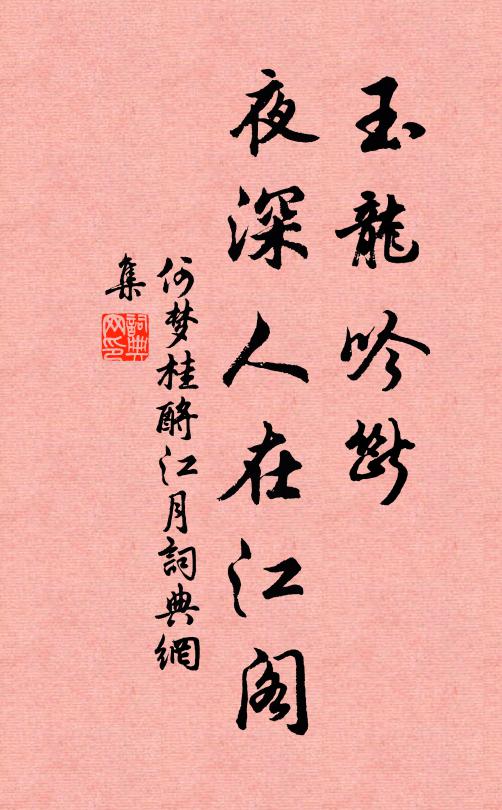 玉龍吟斷
夜深人在江阁
何梦桂酹江月詞典網
集
詞典网印